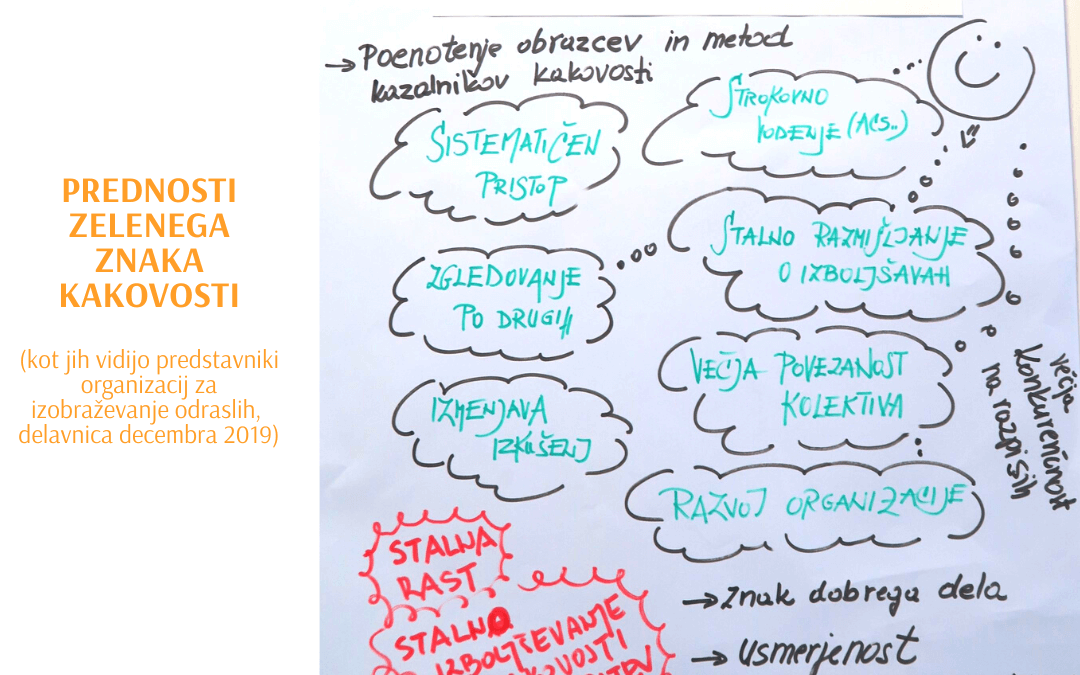 PREDNOSTI
ZELENEGA
ZNAKA
KAKOVOSTI
(kot jih vidijo predstavniki
organizacij za
izobraževanje odraslih,
delavnica decembra 2019)
→ Poenotenje obrazcev in metod
kazalnikov kakovosti
SISTEMATIČEN
PRISTOP
STROKOVNO
VODENJE (ACS..)
ZGLEDOVANJE
PO DRUGIH
STALNO RAZMIŠLJANJE
O IZBOLJŠAVAH
IZMENJAVA
IZKUŠENJ
VEČJA POVEZANOST
KOLEKTIVA
RAZVOJ ORGANIZACIJE
večja
konkurenčnost
na razpisih
STALNA
RAST
STALNO
IZBOLJŠEVANJE
→ znak dobrega dela
→ usmerjenost